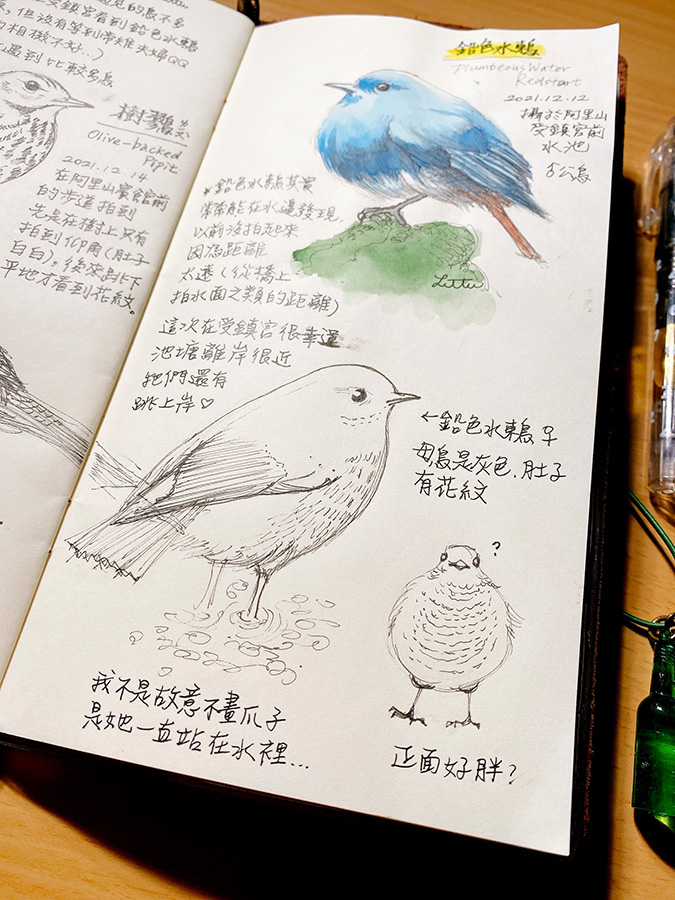 但沒有等到常雄夫婦QQ
的相機不好...)
遇到比較多鳥
樹鷚
Olive-backed
Pipit
2021.12.14
在阿里山賓館前
的步道拍到
先是在樹上只有
拍到仰角(肚子
白白)。後來跳下
平地才看到花紋。
鉛色水鶇
Plumbeous Water
Redstart
2021.12.12
攝於阿里山
受鎮宮前
水池
♂公鳥
*鉛色水鶇其實
常常能在水邊發現
以前沒拍起來
因為距離
太遠(從橋上
拍水面之類的距離)
這次在受鎮宮很幸運
池塘離岸很近
牠們還有
跳上岸♡
Littu
←鉛色水鶇♀
母鳥是灰色,肚子
有花紋
?
我不是故意不畫爪子
是她一直站在水裡...
正面好胖?